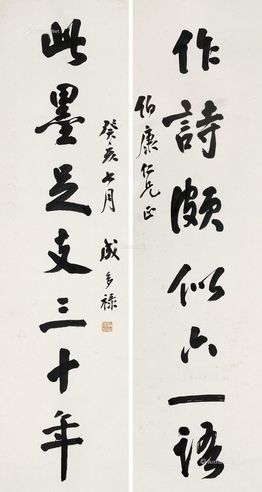 作詩頗似六一語
伯康仁兄正
此墨足支三十年
癸亥七月 成多祿